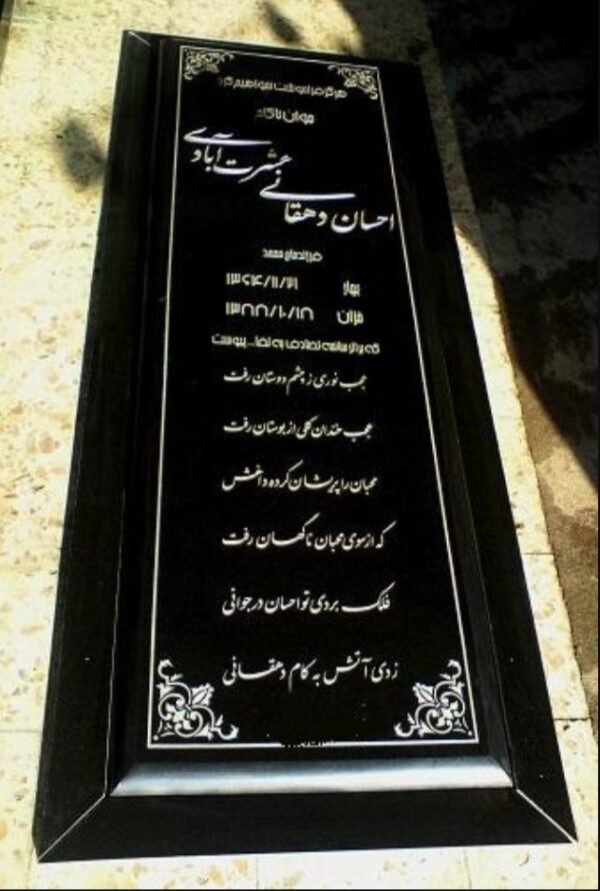 هرگز فراموشت نخواهیم کرد
جوان ناکام
احسان دهقانی عشرت آبادی
فرزند محمد
بهار ۱۳۶۴/۱۱/۲۱
خزان ۱۳۸۸/۱۰/۱۸
که بر اثر سانحه تصادف به لقاا... پیوست
عجب نوری ز چشم دوستان رفت
عجب خندان گلی از بوستان رفت
محبان را پریشان کرده داغش
که از سوی محبان ناگهان رفت
فلک بردی تو احسان در جوانی
زدی آتش به کام دهقانی